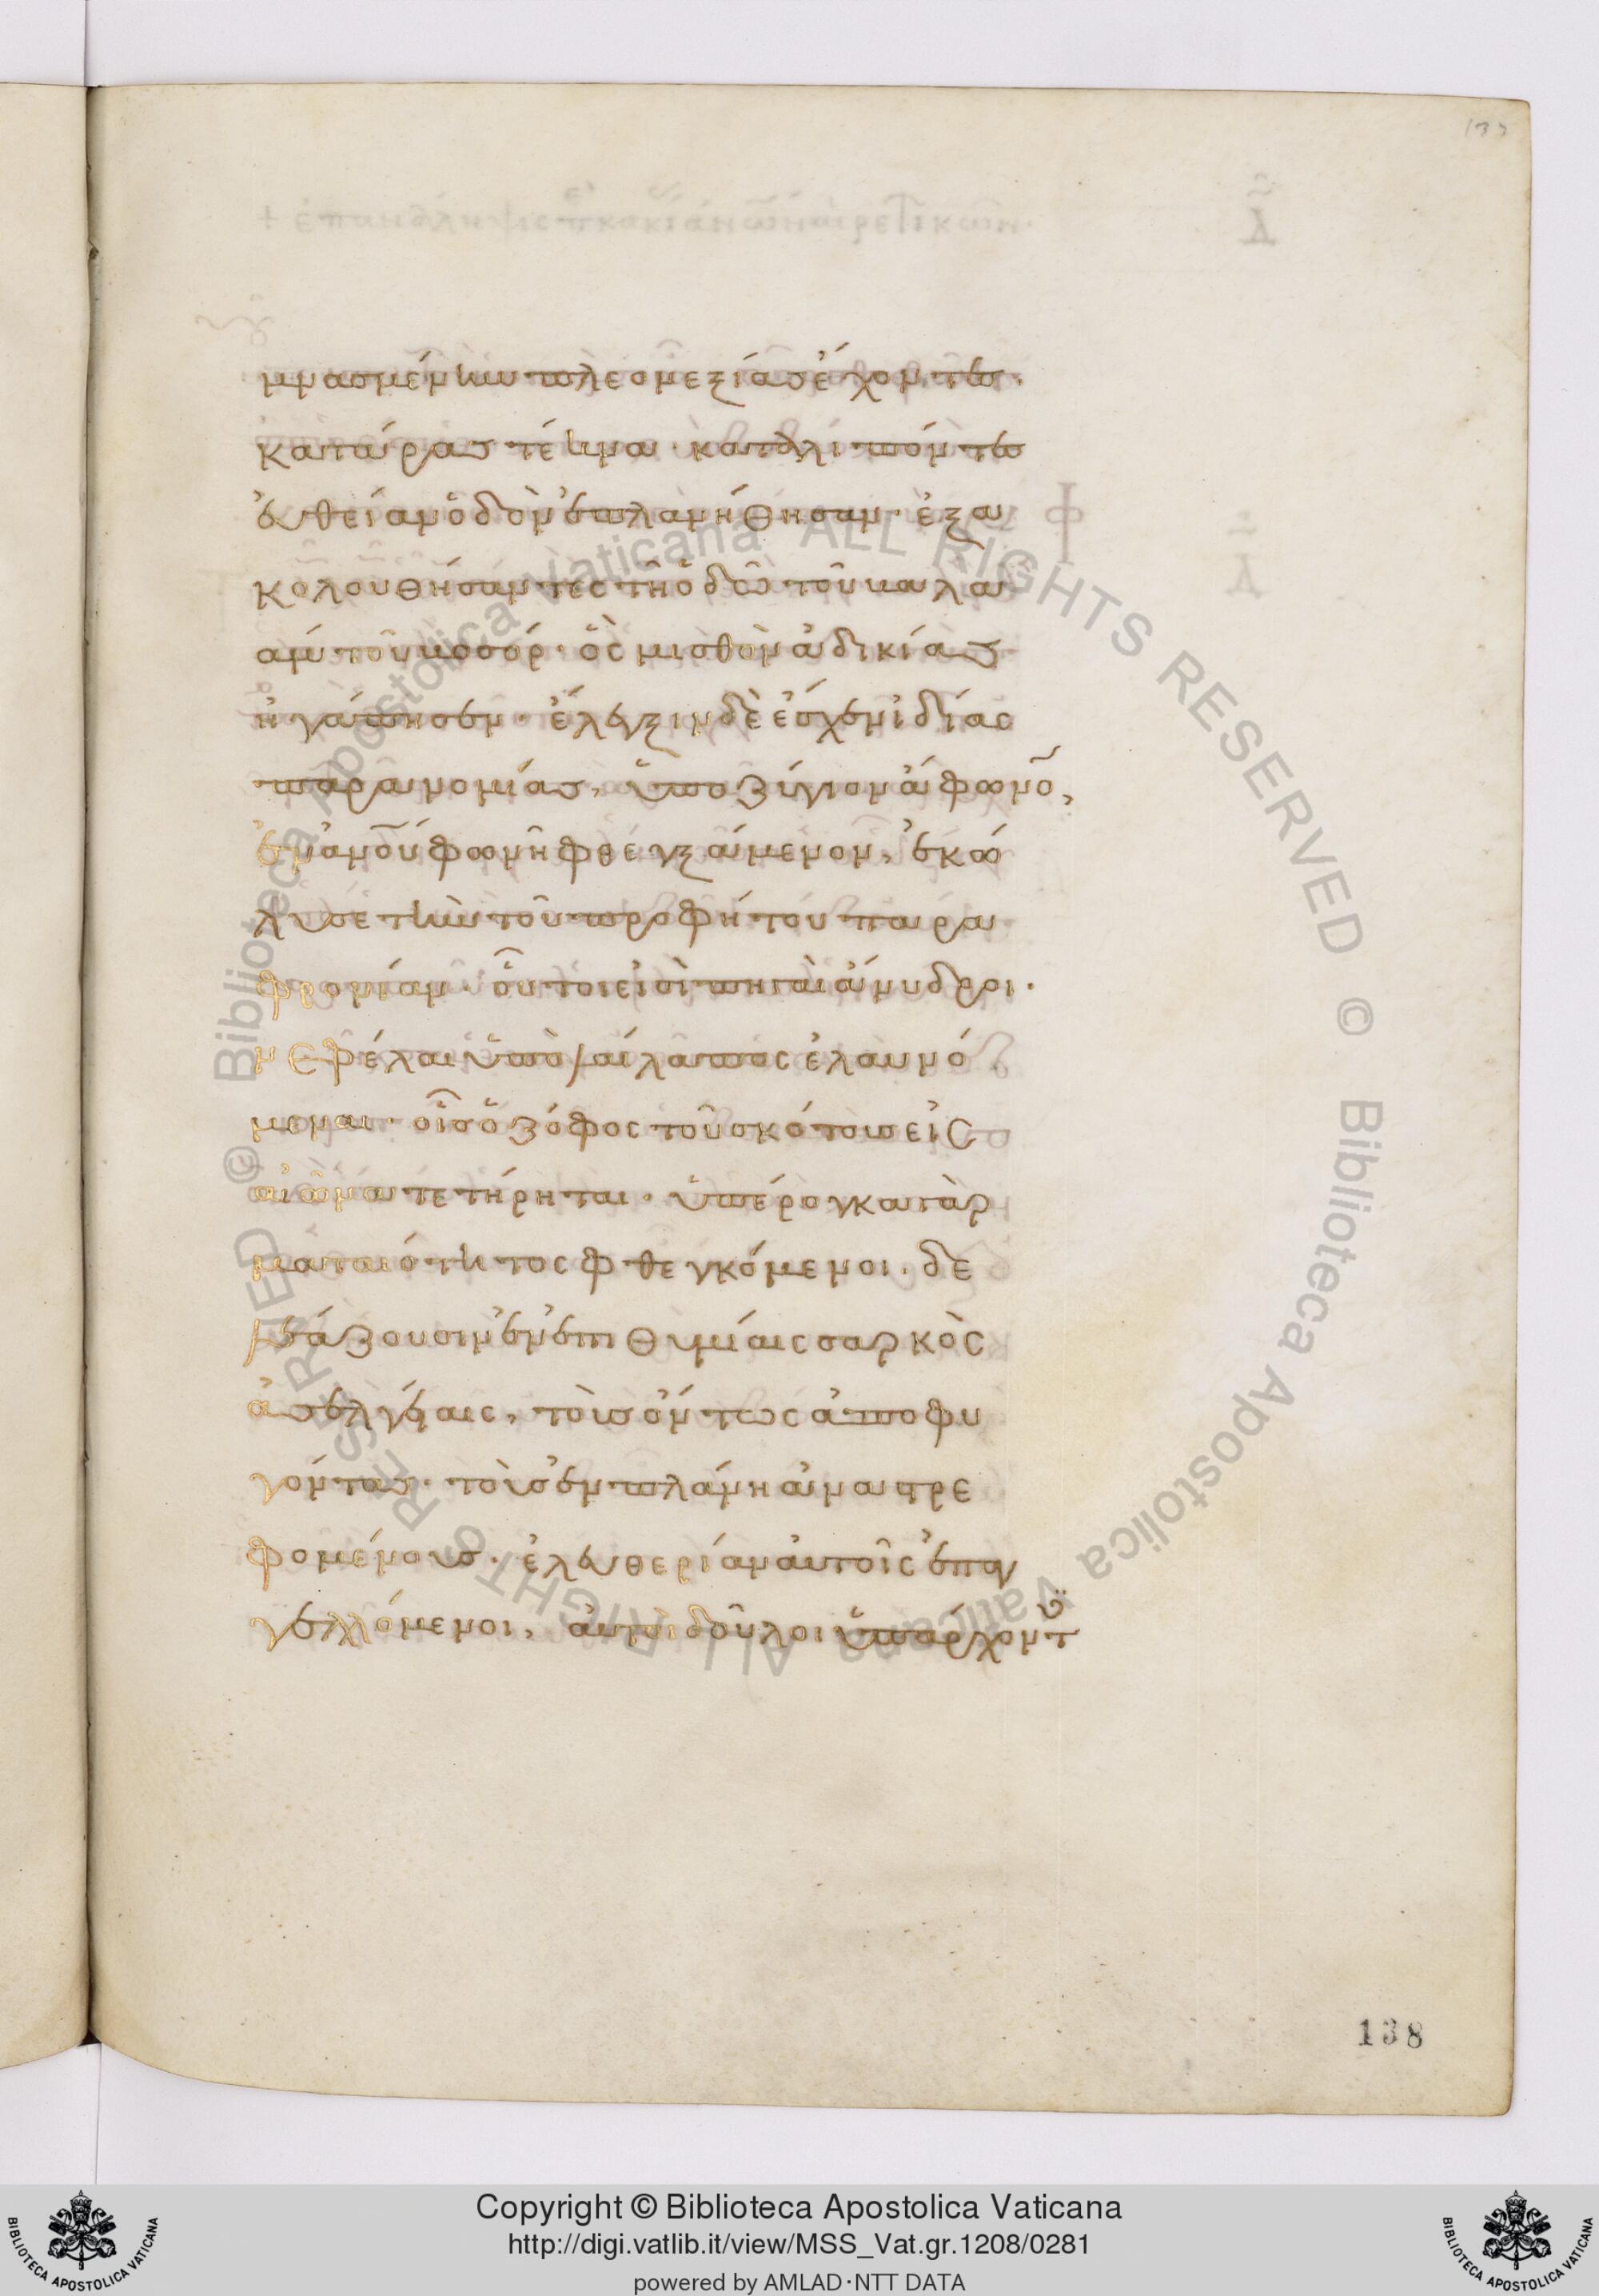 μνασμένην πλεονεξίας ἔχοντες·
κατάρας τέκνα· καταλιπόντες
εὐθεῖαν ὁδὸν ἐπλανήθησαν· ἐξα
κολουθήσαντες τῆ ὁδῶ τοῦ βαλα
ὰμ τοῦ βοσόρ· ὃς μισθὸν ἀδικίας
ἠγάπησεν· ἔλεγξιν δὲ ἔσχεν ἰδίας
παρανομίας, ὑποζύγιον ἄφωνον,
ἐν ἀνοῦ φωνῆ φθεγξάμενον, ἐκώ
λυσε τὴν τοῦ προφήτου παρα
φρονίαν· οὗτοι εἰσὶ πηγαὶ ἄνυδροι·
νεφέλαι ὑπὸ λαίλαπος ἐλαυνό
μεναι· οἷς ὁ ζόφος τοῦ σκότους εἰς
αἰῶνα τετήρηται· ὑπέρογκα γὰρ
ματαιότητος φθεγκόμενοι· δε
λεάζουσιν ἐν ἐπιθυμίαις σαρκὸς
ἀσελγείαις, τοὺς ὄντως ἀποφυ
γόντας· τοὺς ἐν πλάνη ἀναστρε
φομένους· ἐλευθερίαν αὐτοῖς ἐπαγ
γελλόμενοι, αὐτοὶ δοῦλοι ὑπάρχοντες
138
Copyright © Biblioteca Apostolica Vaticana
http://digi.vatlib.it/view/MSS_Vat.gr.1208/0281
powered by AMLAD·NTT DATA